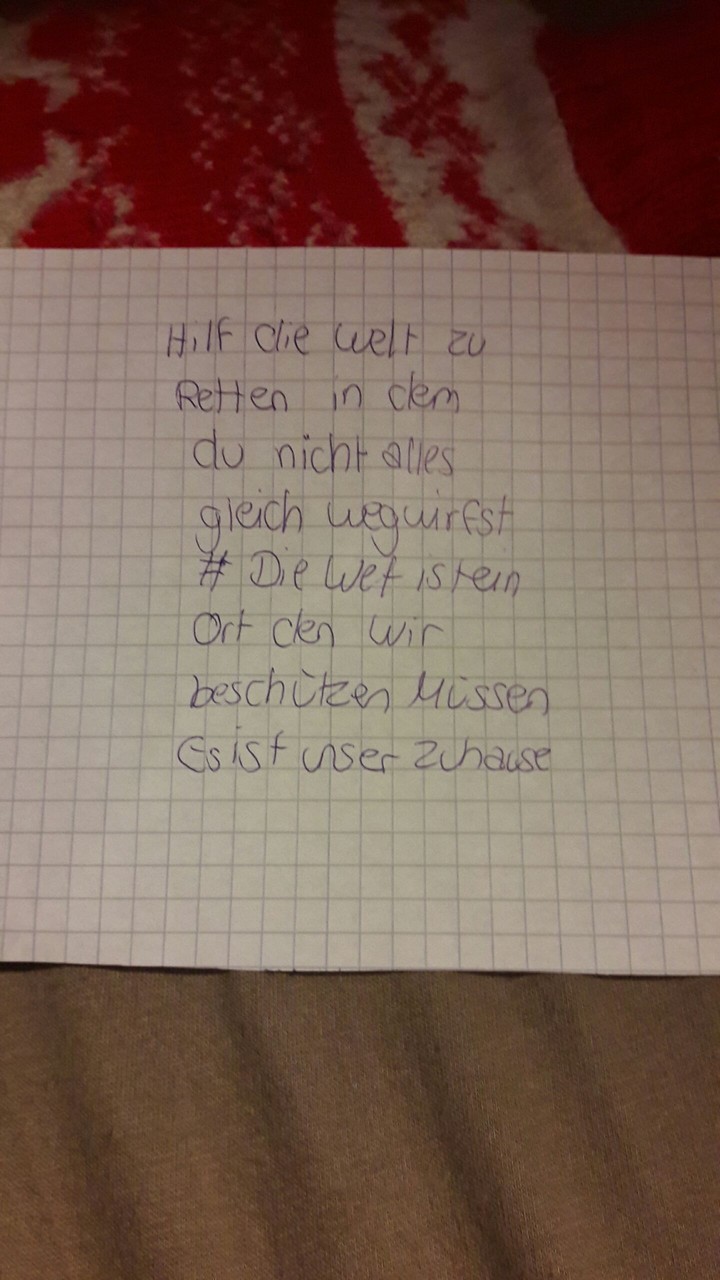 Hilf die welt zu
Retten in dem
du nicht alles
gleich wegwirfst
# Die Welt ist ein
Ort den wir
beschützen Müssen
Es ist unser Zuhause